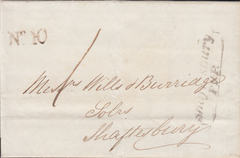 No 10
1
Messrs Wills & Burridge
Solrs
Shaftesbury